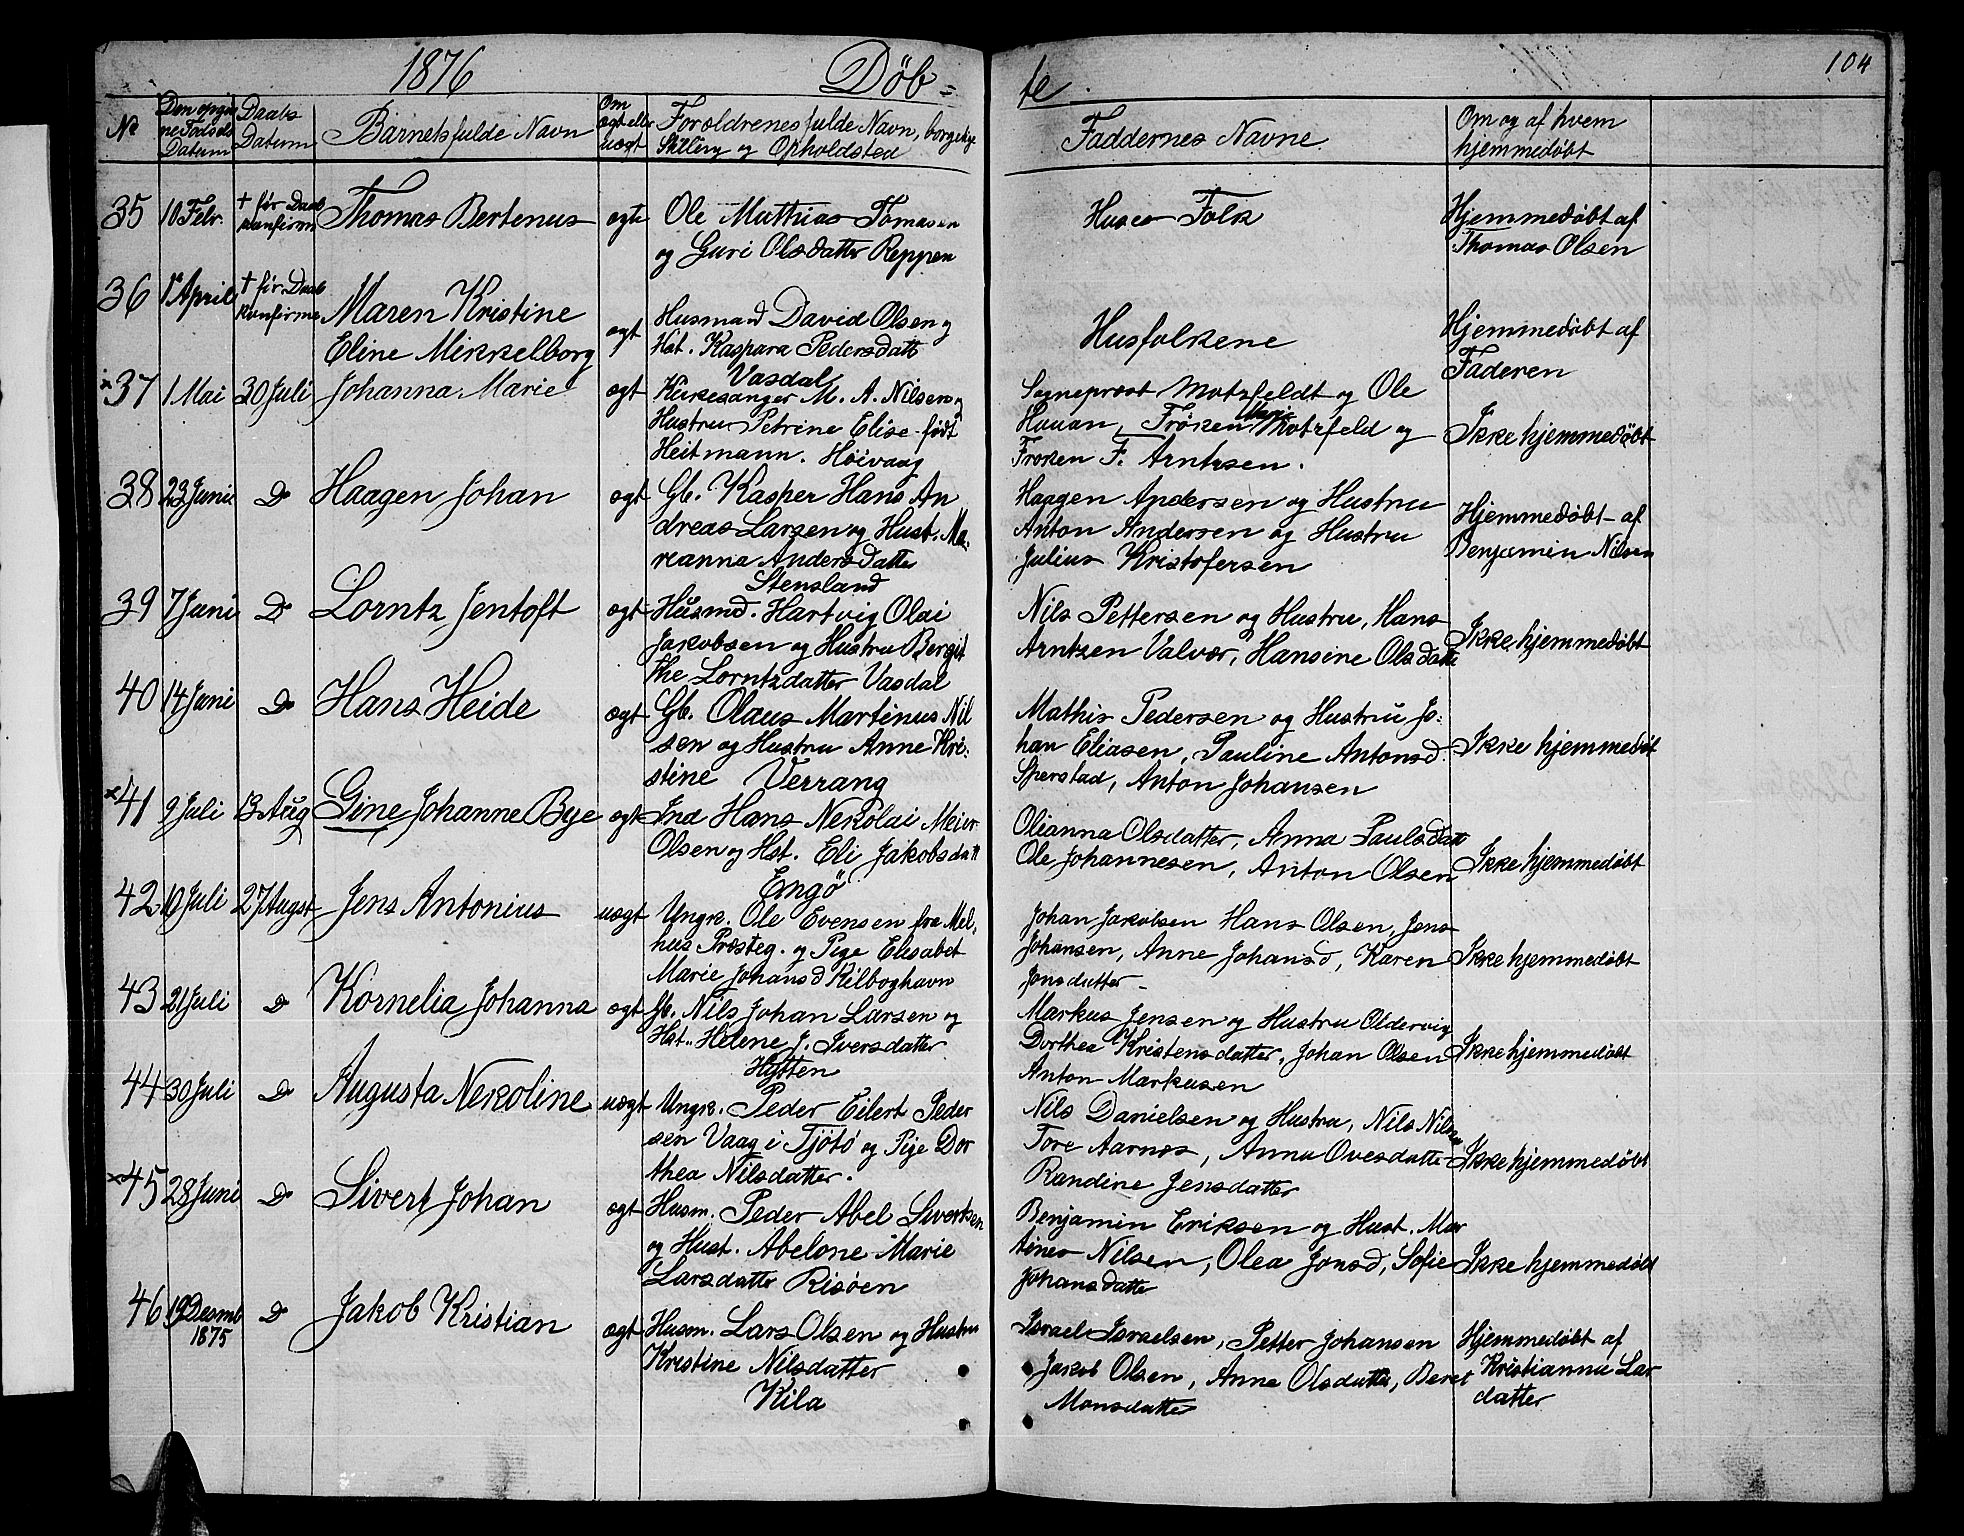 1876 Døb= te. 104
No Den opgivne Fødsels Datum Daabs Datum Barnets fulde Navn Om ægte eller uægt Forældrenes fulde Navn, borgelige Stilling og Opholdsted Faddernes Navne Om og af hvem hjemmedøbt
35 10 Febr. + før Daab konfirm Thomas Bertenus ægte Ole Mathias Tomasen
og Guri Olsdatter Reppen
Huses Folk
Hjemmedøbt af
Thomas Olsen
36 1 April + før Daab Konfirme Maren Kristine
Eline Mikkelborg
ægt Husmand David Olsen og
Hst. Kaspara Pedersdatt
Vasdal
Husfolkene
Hjemmedøbt af
Faderen
x 37 1 Mai 30 Juli Johanna Marie ægt Kirkesanger M. A. Nilsen og
Hustru Petrine Elise født
Heitmann. Höivaag
Sogneprost Motzfeldt og Ole
Hauan, Frøken Marie Motzfeld og
Frøken F. Arntzen.
Ikke hjemmedøbt
38 23 Juni Do Haagen Johan ægt Gb. Kasper Hans An
dreas Larsen og Hust. Ma-
reanna Andersdatter
Stensland
Haagen Andersen og Hustru
Anton Andersen og Hustru
Julius Kristofersen
Hjemmedøbt af
Benjamin Nilsen
39 7 Juni Do Lorntz Jentoft ægt Husmd. Hartvig Olai
Jakobsen og Hustru Bergit
the Lorntzdatter Vasdal
Nils Pettersen og Hustru, Hans
Arntzen Valvær, Hansine Olsdatte
Ikke hjemmedøbt
40 14 Juni Do Hans Heide ægt Gb. Olaus Martinus Nil
sen og Hustru Anne Kri-
stine Verrang
Mathis Pedersen og Hustru Jo-
han Eliasen, Pauline Antonsd.
Sperstad, Anton Johansen
Ikke hjemmedøbt
x 41 9 Juli 13 Aug Gine Johanne Bye ægt Ind Hans Nekolai Meier
Olsen og Hst. Eli Jakobsdatt
Engö
Olianna Olsdatter, Anna Paulsdatt
Ole Johannesen, Anton Olsen
Ikke hjemmedøbt
42 10 Juli 27 Augst Jens Antonius uægt Ungk. Ole Evensen fra Mel-
hus Præsteg. og Pige Elisabet
Marie Johansd Kilboghavn
Johan Jakobsen Hans Olsen, Jens
Johansen, Anne Johansd, Karen
Jonsdatter
Ikke hjemmedøbt
43 21 Juli Do Kornelia Johanna ægt Gb. Nils Johan Larsen og
Hst. Helene J. Iversdatter
Hytten
Markus Jensen og Hustru Oldervig
Dorthea Kristensdatter, Johan Olsen
Anton Markusen
Ikke hjemmedøbt
44 30 Juli Do Augusta Nekoline uægt Ungk. Peder Eilert Peder
sen Vaag i Tjötö og Pige Dor
thea Nilsdatter.
Nils Danielsen og Hustru, Nils Nilsen
Tore Aarnes, Anna Ovesdatter
Randine Jensdatter
Ikke hjemmedøbt
x 45 28 Juni Do Sivert Johan ægt Husm. Peder Abel Sivertsen
og Hust. Abelone Marie
Larsdatter Risöen
Benjamin Eriksen og Hust. Mar
tines Nilsen, Olea Jonsd, Sofie
Johansdatte
Ikke hjemmedøbt
46 19 Desmb 1875 Do Jakob Kristian ægt Husm. Lars Olsen og Hustru
Kristine Nilsdatter
Kila
Israel Israelsen, Petter Johansen
Jakob Olsen, Anne Olsdatter, Beret
Monsdatter
Hjemmedøbt af
Kristianna Lar
datter